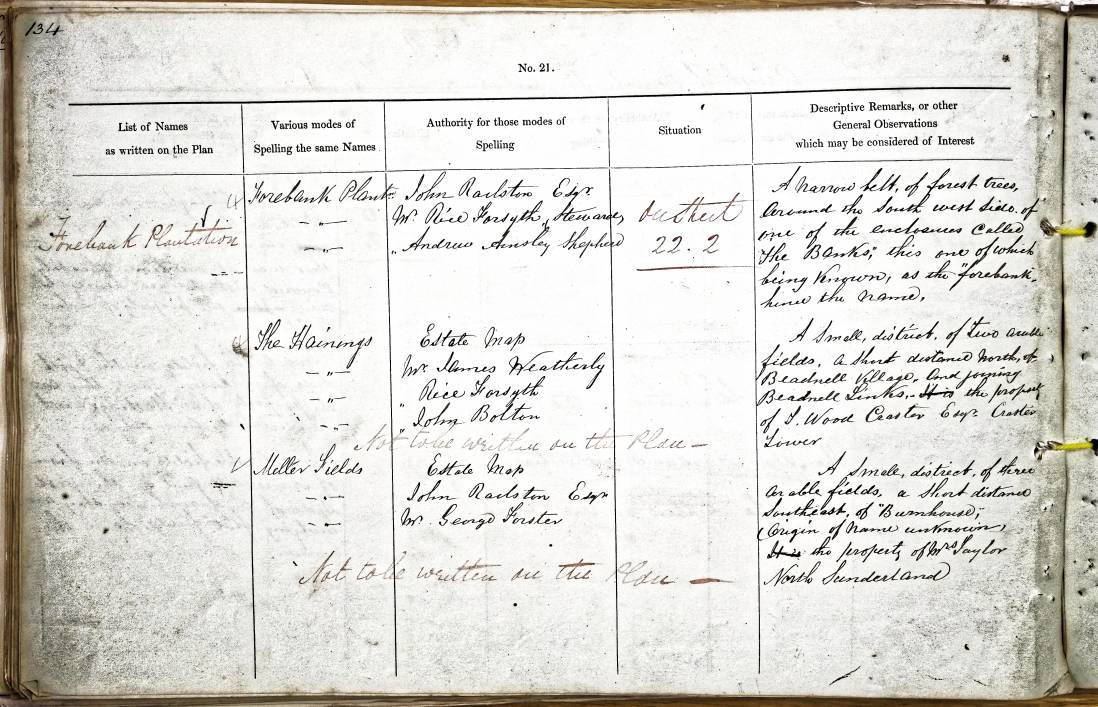 134
No. 21.
List of Names
as written on the Plan
Various modes of
Spelling the same Names
Authority for those modes of
Spelling
Situation
Descriptive Remarks, or other
General Observations
which may be considered of Interest
Forebank Plantation
Forebank Plantn.
- " -
- " -
John Railston Esqr
Mr. Rice Forsyth, Steward,
" Andrew Ainsley Shepherd
On Sheet
22.2
A narrow belt, of forest trees,
around the South west side. of
one of the enclosures Called
"The Banks," this one of which
being Known, as the "forebank"
hence the Name.
The Hainings
- " -
- " -
- " -
Estate Map
Mr. James Weatherly
" Rice Forsyth
" John Bolton
A Small, district. of Two arable
fields, a short distance North, of
Beadnell Village. And joining
Beadnell Links. - It is the property
of T. Wood Craster Esqr. Craster
Tower
Not to be written on the Plan -
Miller Fields
- " -
- " -
Estate Map
John Railston Esqr
Mr. George Forster
A Small, district, of three
arable fields, a Short distance
Southeast, of "Burnhouse",
(Origin of Name unknown,
It is the property of Mrs Taylor
North Sunderland
Not to be written on the Plan -